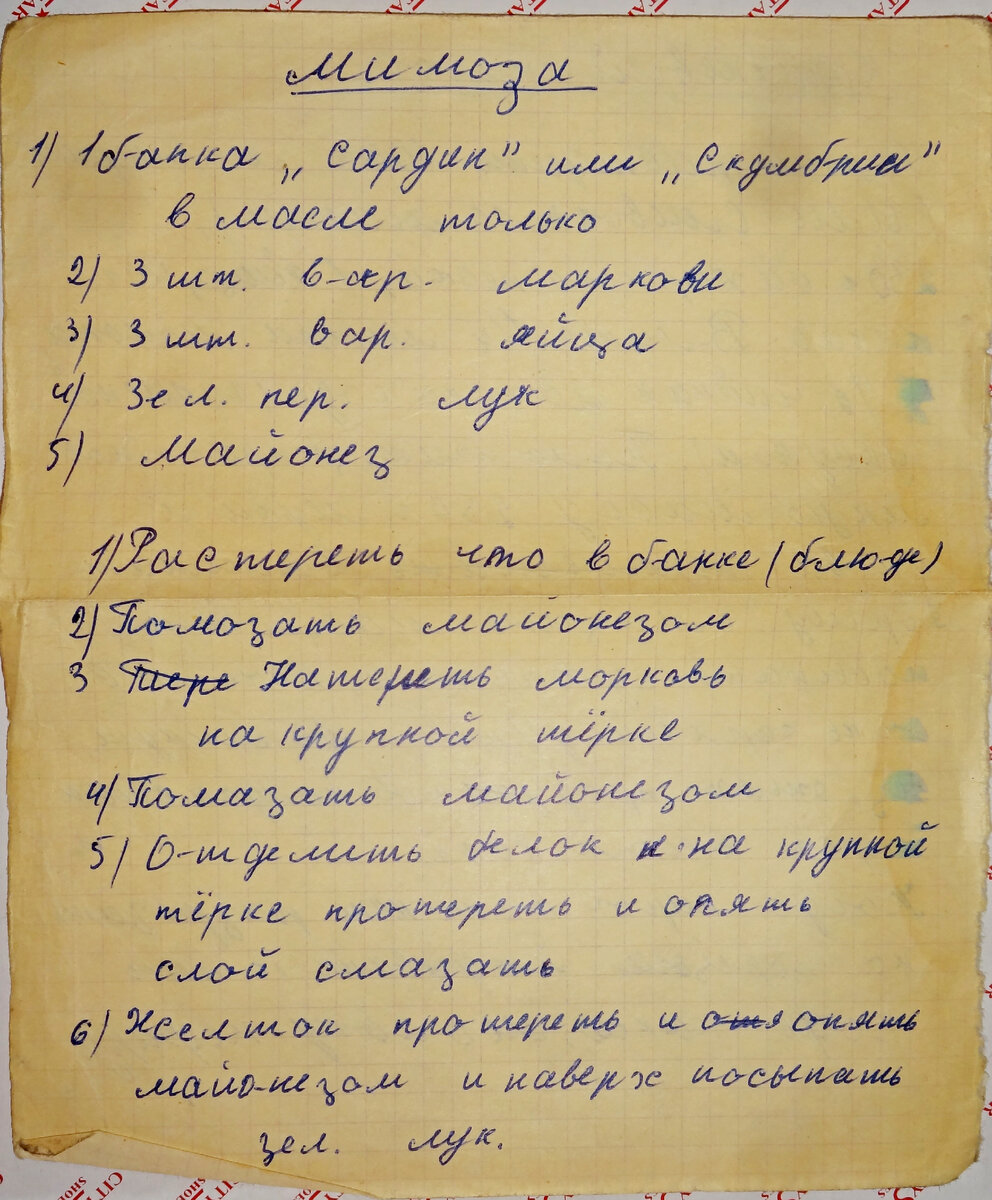 Мимоза
1) 1 банка „Сардин” или „Скумбрии”
в масле только
2) 3 шт. вар. маркови
3) 3 шт. вар. яйца
4) Зел. пер. лук
5) Майонез
1) Растереть что в банке (блюде)
2) Помозать майонезом
3 Натереть морковь
на крупной тёрке
4) Помазать майонезом
5) Отделить белок и на крупной
тёрке протереть и опять
слой смазать
6) Желток протереть и опять
майонезом и наверх посыпать
зел. лук.